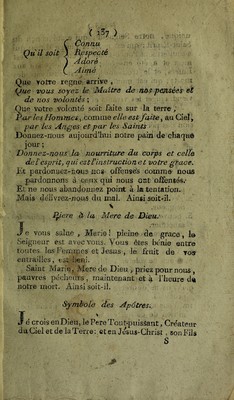 ( 137 )
Connu
Qu'il soit Respecté
Adoré
Aimé
Que votre regne arrive,
Que vous soyez le Maître de nos pensées et
de nos volontés;
Que votre volonté soit faite sur la terre,
Par les Hommes, comme elle est faite, au Ciel,
par les Anges et par les Saints
Donnez-nous aujourd'hui notre pain de chaque
jour;
Donnez-nous la nourriture du corps et celle
de l'esprit, qui est l'instruction et votre grace.
Et pardonnez-nous nos offenses comme nous
pardonnons à ceux qui nous ont offensés.
Et ne nous abandonnez point à la tentation.
Mais délivrez-nous du mal. Ainsi soit-il.
à la Mere de Dieu.
Je vous salue, Marie! pleine de grace, le
Seigneur est avec vous. Vous êtes bénie entre
toutes les Femmes et Jesus, le fruit de vos
entrailles, est beni.
Saint Marie, Mere de Dieu, priez pour nous,
pauvres pécheurs, maintenant et à l'heure de
notre mort. Ainsi soit-il.
Symbole des Apôtres.
Je crois en Dieu, le Père Tout-puissant, Créateur
du Ciel et de la Terre: et en Jésus-Christ, son Fils
S